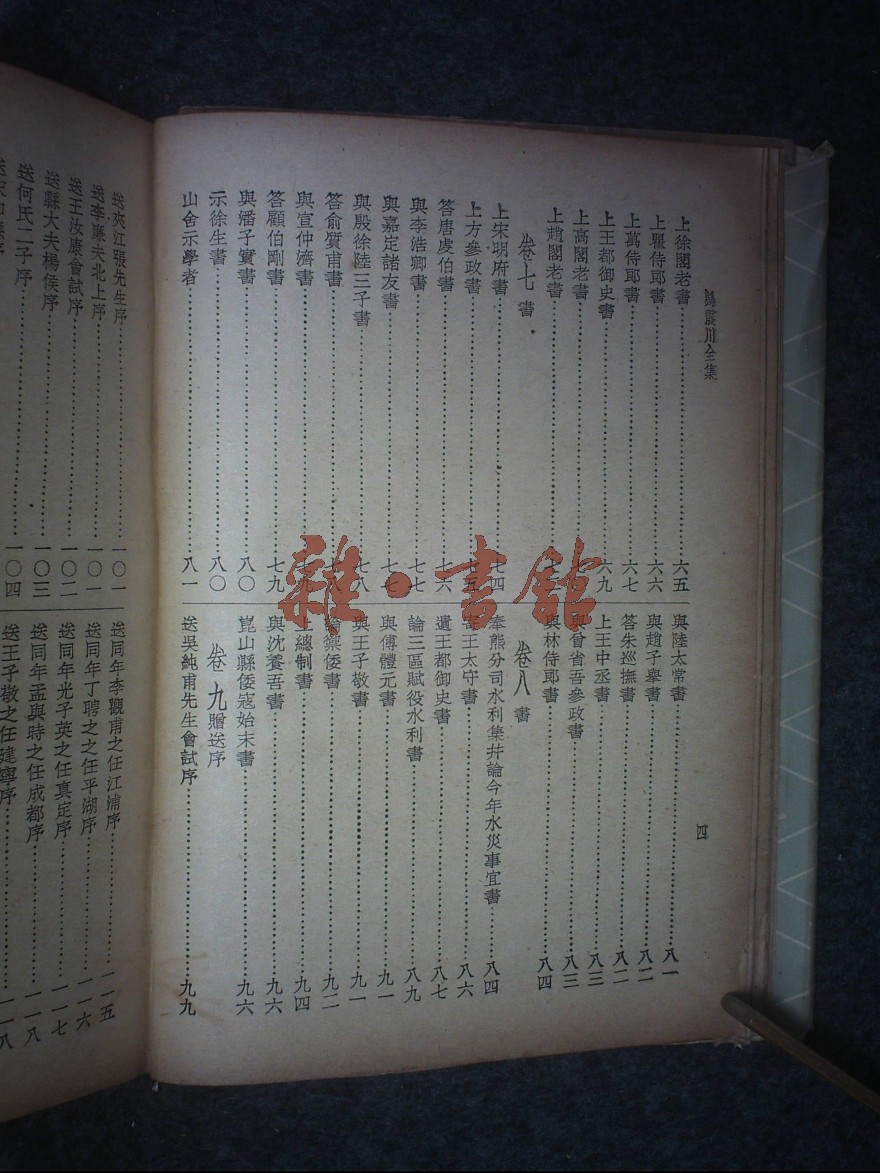 歸震川全集
四
上徐閣老書 六五
上瞿侍郎書 六六
上萬侍郎書 六七
上王都御史書 六九
上高閣老書
上趙閣老書
卷七 書
上宋明府書 七四
上方參政書
答唐虔伯書 七六
與李浩卿書 七七
與嘉定諸友書
與殷徐陸三子書 七八
答俞質甫書
與宣仲濟書
答顧伯剛書 七九
與潘子實書 八〇
示徐生書 八〇
山舍示學者 八一
與陸太常書 八一
與趙子舉書 八二
答朱巡撫書 八二
上王中丞書 八三
與曾省吾參政書 八三
與林侍郎書 八四
卷八 書
奉熊分司水利集幷論今年水災事宜書 八四
王太守書 八六
遺王都御史書 八七
論三區賦役水利書 八九
與傅體元書 九一
與王子敬書 九一
論禦倭書 九二
上總制書 九四
與沈養吾書 九六
崑山縣倭寇始末書 九六
卷九 贈送序
送吳純甫先生會試序 九九
送夾江張先生序 一〇一
送李廉夫北上序 一〇一
送王汝康會試序 一〇二
送縣大夫楊侯序 一〇三
送何氏二子序 一〇四
送同年李觀甫之任江浦序 一一五
送同年丁聘之之任平湖序 一一六
送同年光子英之任真定序 一一七
送同年孟與時之任成都序 一一八
送王子敬之任建寧序
雜·書館